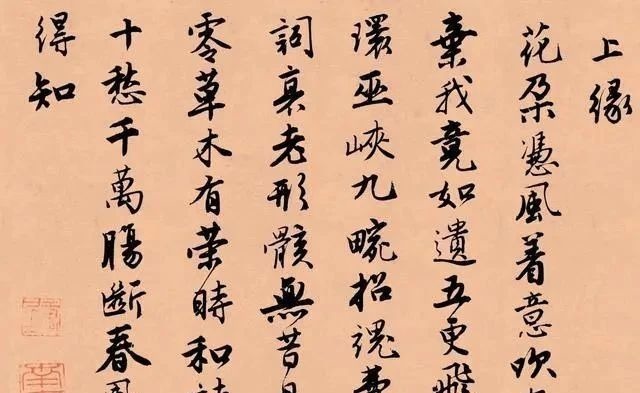 上緣
花朶憑風着意吹
棄我竟如遺五更飛
環巫峽九畹招魂
詞哀老形骸無昔
零草木有榮時和詩
十愁千萬腸斷春風
得知